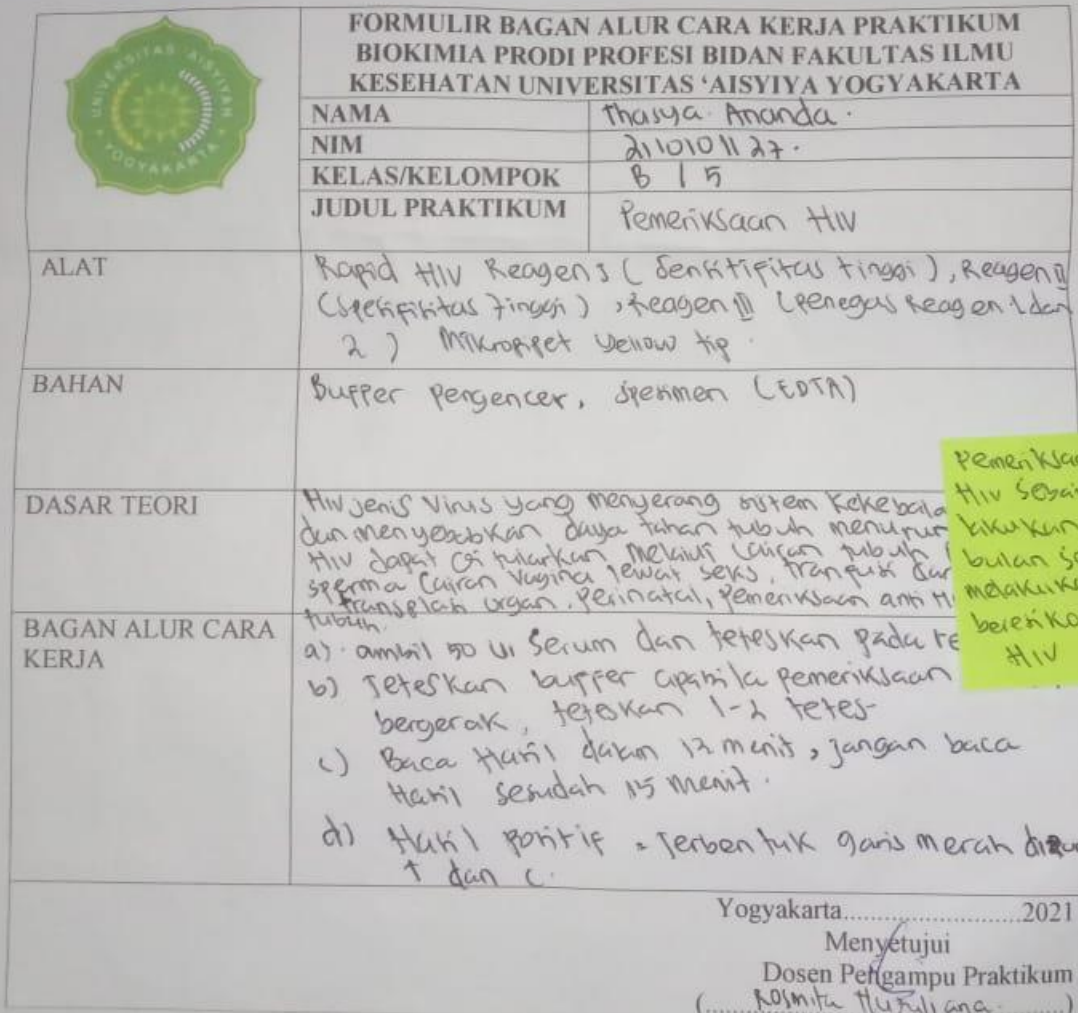 UNIVERSITAS 'AISYIYAH
YOGYAKARTA
FORMULIR BAGAN ALUR CARA KERJA PRAKTIKUM
BIOKIMIA PRODI PROFESI BIDAN FAKULTAS ILMU
KESEHATAN UNIVERSITAS 'AISYIYA YOGYAKARTA
NAMA Thasya Ananda.
NIM 2110101127.
KELAS/KELOMPOK B / 5
JUDUL PRAKTIKUM Pemeriksaan HIV
ALAT Rapid HIV Reagens (Sensitifitas tinggi), Reagen II
(Spesifikitas Tinggi), Reagen III (Penegas Reagen 1 dan
2) Mikropipet yellow tip.
BAHAN Buffer Pengencer, Spesimen (EDTA)
DASAR TEORI HIV jenis Virus yang menyerang sistem Kekebala
dan menyebabkan daya tahan tubuh menurun
HIV dapat di tularkan melalui cairan tubuh
sperma Cairan Vagina lewat seks, tranfusi dar
transplan organ, perinatal, Pemeriksaan anti H
tubuh.
Pemeriksaa
HIV Sebai
bulan Se
melakuka
beresiko
HIV
BAGAN ALUR CARA
KERJA
a). ambil 50 ul Serum dan teteskan pada re
b) Teteskan buffer apabila pemeriksaan
bergerak, teteskan 1-2 tetes-
c) Baca Hasil dalam 12 menit, jangan baca
Hasil sesudah 15 menit.
d) Hasil Positif = Terbentuk garis merah
T dan C.
Yogyakarta..........................2021
Menyetujui
Dosen Pengampu Praktikum
(.... Rosmita ......)